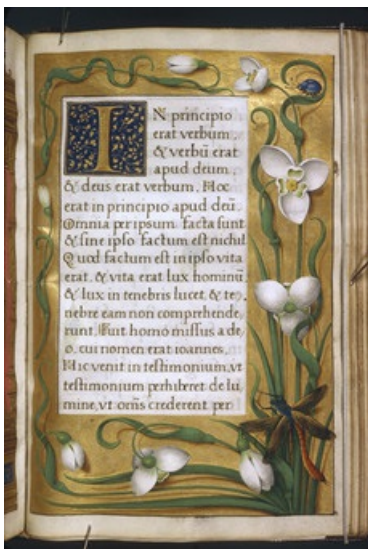 IN principio
erat verbum.
& verbū erat
apud deum.
& deus erat verbum. Hoc
erat in principio apud deū.
Omnia per ipsum facta sunt
& sine ipso factum est nichil
Quod factum est in ipso vita
erat. & vita erat lux hominū
& lux in tenebris lucet. & te
nebre eam non comprehende
runt. Fuit homo missus a de
o. cui nomen erat ioannes.
Hic venit in testimonium, vt
testimonium perhiberet de lu
mine, vt om̄s crederent per